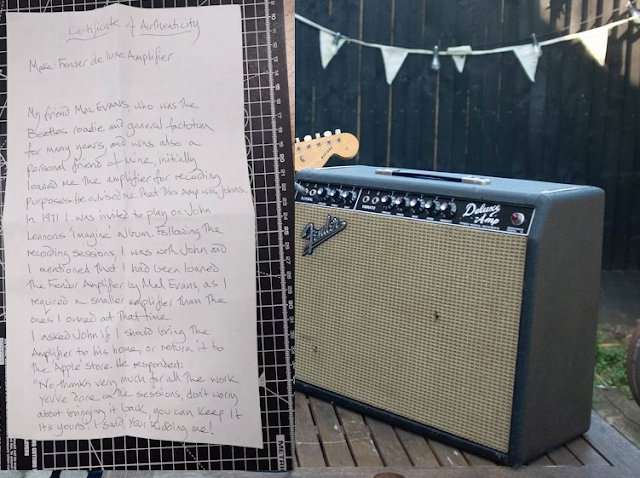 Certificate of Authenticity
Make Fender deluxe Amplifier
My friend Mal EVANS, who was The
Beatles roadie and general factotum
for many years, and was also a
personal friend of mine, initially
loaned me the amplifier for recording
purposes. He advised me That This Amp was Johns.
In 1971 I was invited to play on John
Lennons 'Imagine' album. Following The
recording sessions, I was with John and
I mentioned That I had been loaned
The Fender Amplifier by Mal Evans, as I
required a smaller amplifier Than The
ones I owned at That time.
I asked John if I should bring The
Amplifier to his home, or return it to
The Apple store. He responded:
"No Thanks very much for all The work
You've done on The sessions, don't worry
about bringing it back, you can keep it
It's yours! I said, You kidding me!
Fender
NORMAL
VIBRATO
Deluxe
Amp